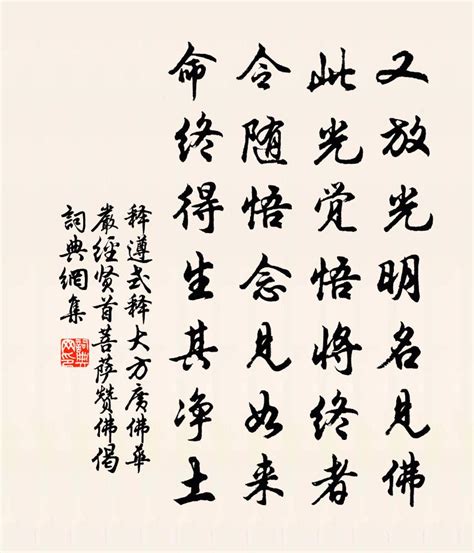 又放光明名见佛
此光觉悟将终者
令随悟念见如来
命终得生其净土
释遵式释大方廣佛華
嚴经贤首菩萨赞佛偈
詞典網集